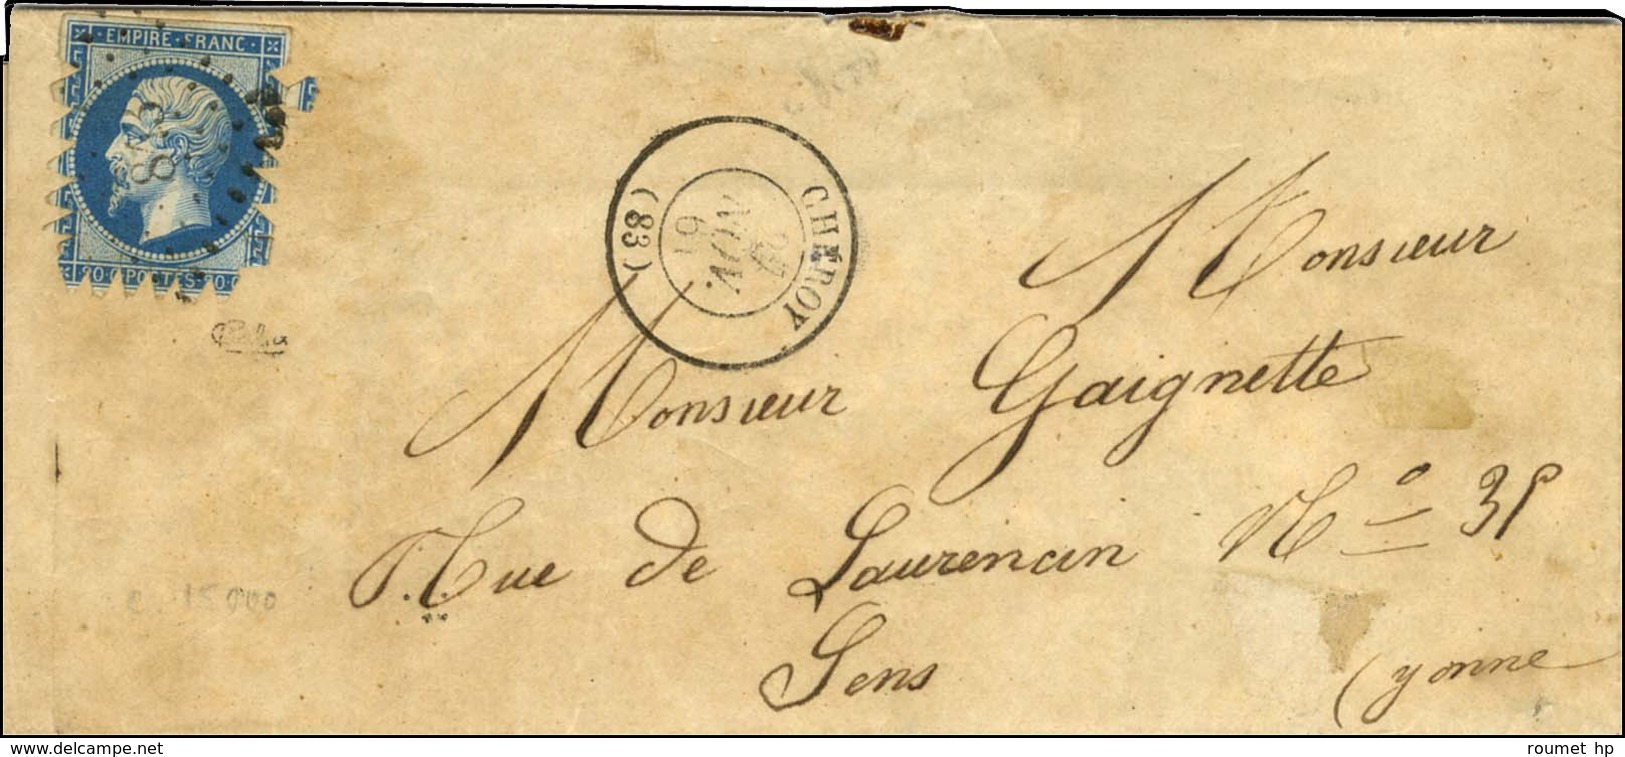 EMPIRE FRANC
843
20·C POSTES 20·C
CHÉROY
NOV.
61
(83)
Monsieur
Monsieur Gaignette
Rue de Laurencin No 35
Sens
(yonne
c. 15000
www.delcampe.net
roumet hp